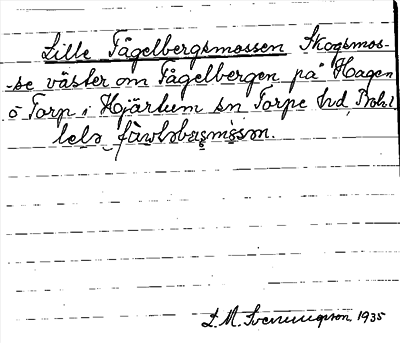 Lille Fågelbergsmossen Skogsmos-
-se väster om Fågelbergen på Hagen
o Torp i Hjärtum sn Torpe hd, Bohl.
lelə
L. M. Svenungsson 1935